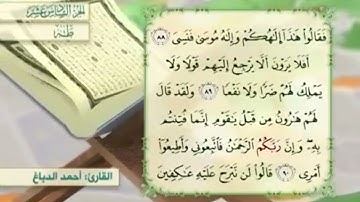 الجزء السادس عشر
طه
فَقَالُوا۟ هَـٰذَآ إِلَـٰهُكُمْ وَإِلَـٰهُ مُوسَىٰ فَنَسِىَ ٨٨
أَفَلَا يَرَوْنَ أَلَّا يَرْجِعُ إِلَيْهِمْ قَوْلًا وَلَا
يَمْلِكُ لَهُمْ ضَرًّا وَلَا نَفْعًا ٨٩ وَلَقَدْ قَالَ
لَهُمْ هَـٰرُونُ مِن قَبْلُ يَـٰقَوْمِ إِنَّمَا فُتِنتُم
بِهِۦ وَإِنَّ رَبَّكُمُ ٱلرَّحْمَـٰنُ فَٱتَّبِعُونِى وَأَطِيعُوٓا۟
أَمْرِى ٩٠ قَالُوا۟ لَن نَّبْرَحَ عَلَيْهِ عَـٰكِفِينَ
القارئ: أحمد الدباغ